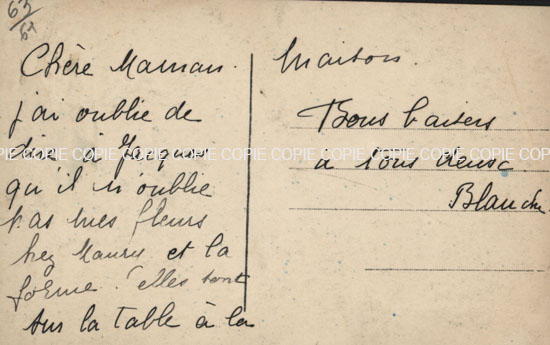 63
64
Chère Maman.
j'ai oublie de
dire à Jacques
qu'il n'oublie
pas mes fleurs
chez Maury et la
forme. Elles sont
sur la table à la
maison.
Bons baisers
a tous deux.
Blanche
COPIE COPIE COPIE COPIE COPIE COPIE COPIE COPIE COPIE COPIE COPIE